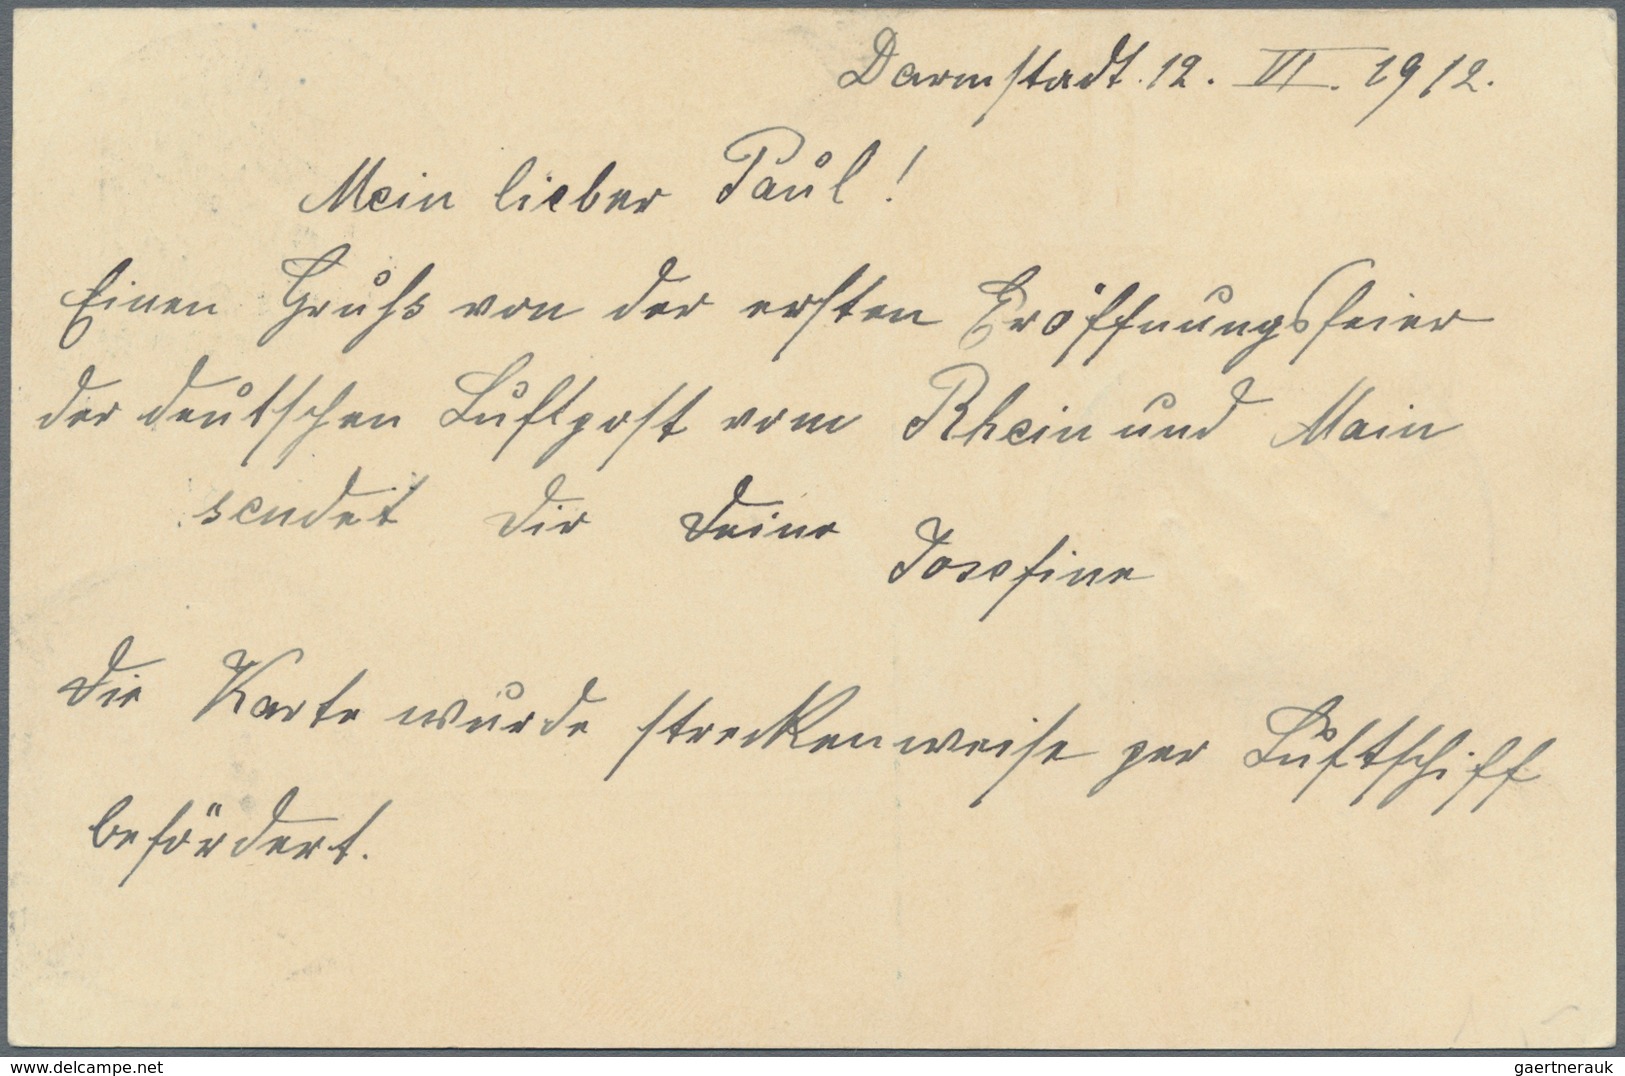 Darmstadt. 12. VI. 1912.
Mein lieber Paul!
Einen Gruß von der ersten Eröffnungsfeier
der deutschen Luftpost vom Rhein und Main
sendet Dir Deine
Josefine
Die Karte wurde streckenweise per Luftschiff
befördert.
www.delcampe.net
gaertnerauk